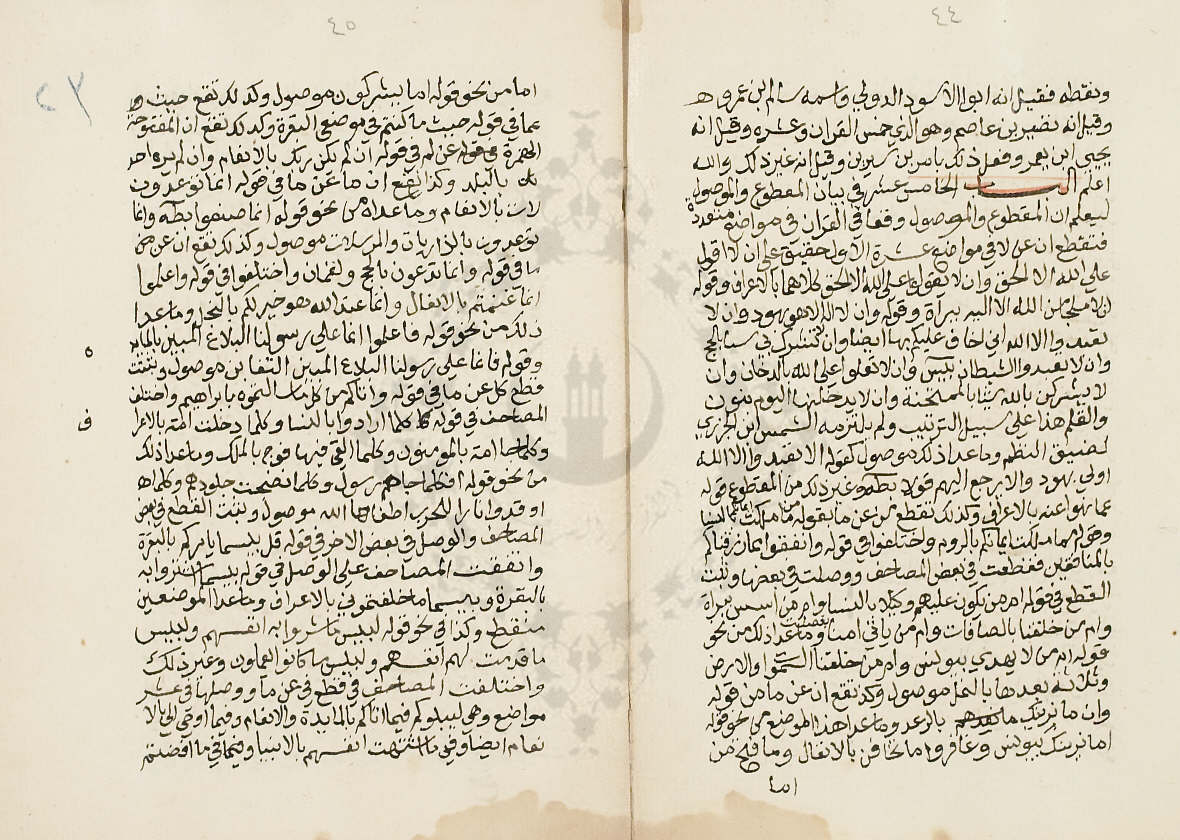 ٤٤
ونقطه فقيل انه ابوا الاسود الدولي واسمه سالم ابن عمرو
وقيل انه نصير بن عاصم وهو الذي خمس القران وعشره وقيل انه
يحيى ابن يعمر وفعل ذلك بامر بن سيرين وقيل انه غير ذلك والله
اعلم الباب الخامس عشر في بيان المقطوع والموصول
ليعلم ان المقطوع والموصول وقعا في القران في مواضع متعددة
فتقطع ان عن لا في مواضع عشرة الاول حقيق على ان لا اقول
على الله الا الحق وان لا يقولوا على الله الا الحق كلاهما بالاعراف وقوله
ان لا ملجا من الله الا اليه ببراة وقوله وان لا اله الا هو بهود وان لا
تعبدوا الا الله اني اخاف عليكم بها ايضا وان لا تشرك بي شيا بالحج
وان لا تعبدوا الشيطان بيس وان لا تعلوا على الله بالدخان وان
لا يشركن بالله شيا بالممتحنة وان لا يدخلنها اليوم بنون
والقلم هذا على سبيل الترتيب ولم يلتزمه الشمس ابن الجزري
لضيق النظم وما عدا ذلك موصول كقوله الا تعبدوا الا الله
اولى بهود والا يرجع اليهم قولا بطه وغير ذلك من المقطوع قوله
عما نهوا عنه بالاعراف وكذلك تقطع من عن ما بقوله من ما ملكت ايمانكم بالنسا
وهل لكم مما ملكت ايمانكم بالروم واختلفوا في قوله وانفقوا مما رزقناكم
بالمنافقين فقطعت في بعض المصاحف ووصلت في بعضها وثبت
القطع في قوله ام من يكون عليهم وكيلا بالنسا وام من اسس ببراة
وام من خلقنا بالصافات وام من ياتي امنا بفصلت وما عدا ذلك من نحو
قوله ام من لا يهدي بيونس وام من خلق السموات والارض
وثلاثة بعدها بالنمل موصول وكذا تقع ان عن ما من قوله
وان ما نرينك بالرعد وما عدا هذا الموضع من نحو قوله
اما نرينك بيونس وغافر واما تخافن بالانفال وما فتح من
اما
٤٥
اما من نحو قوله اما يشركون موصول وكذلك تقع حيث
عما في قوله حيث ما كنتم في موضعي البقرة وكذلك تقع ان المفتوحة
الهمزة في قوله عن لم في قوله ان لم يكن ربك بالانعام وان لم يره احد
بالبلد وكذا يقع ان ما عن ما في قوله انما توعدون
لات بالانعام وما عداه من نحو قوله انما صنعوا بطه وانما
توعدون بالذاريات والمرسلات موصول وكذلك تقع ان عن
ما في قوله وانما تدعون بالحج ولقمان واختلفوا في قوله واعلموا
انما غنمتم بالانفال وانما عند الله هو خير لكم بالنحل وما عدا
ذلك من نحو قوله فاعلموا انما على رسولنا البلاغ المبين بالمايدة
وقوله فانما على رسولنا البلاغ المبين التغابن موصول وثبتت
قطع كل عن ما في قوله واتاكم من كل ما سالتموه بابراهيم واختلفت
المصاحف في قوله كلما ردوا بالنسا وكلما دخلت امة بالاعراف
وكلما جا امة بالمومنون وكلما القي فيها فوج بالملك وما عدا ذلك
من نحو قوله افكلما جاهم رسول وكلما نضجت جلودهم وكلما
اوقدوا نارا للحرب اطفاها الله موصول وثبت القطع في بعض
المصاحف والوصل في بعض الاخر في قوله قل بيسما يامركم بالبقرة
واتفقت المصاحف على الوصل في قوله بيسما اشتروا به
بالبقرة وبيسما خلفتموني بالاعراف وما عدا الموضعين
منقطع وكذا في نحو قوله لبيس ما شروا به انفسهم ولبيس
ما قدمت لهم انفسهم ولبيس ما كانوا يعملون وغير ذلك
واختلفت المصاحف في قطع في عن ما ووصلها في عشر
مواضع وهي ليبلوكم فيما اتاكم بالمايدة والانعام وفيما اوحي الي بالا
نعام ايضا وفي ما اشتهت انفسهم بالانبيا وفيما في ما افضتم